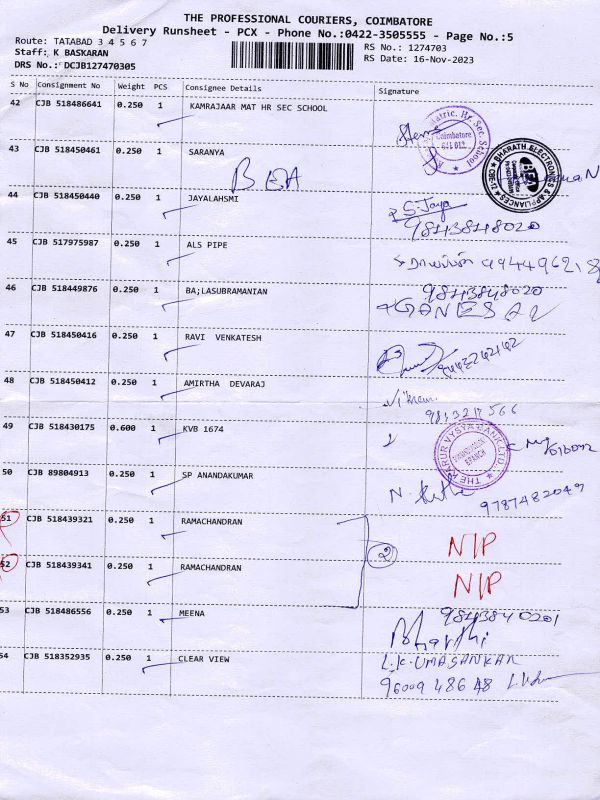 THE PROFESSIONAL COURIERS, COIMBATORE
Delivery Runsheet - PCX - Phone No.:0422-3505555 - Page No.:5
Route: TATABAD 3 4 5 6 7
RS No.: 1274703
Staff: K BASKARAN
RS Date: 16-Nov-2023
DRS No.: DCJB127470305
S No Consignment No Weight PCS Consignee Details Signature
42 CJB 518486641 0.250 1 KAMRAJAAR MAT HR SEC SCHOOL
Coimbatore
641 012
43 CJB 518450461 0.250 1 SARANYA
BHARATH ELECTRONICS & APPLIANCES
44 CJB 518450440 0.250 1 JAYALAHSMI S. Jaya
9843848020
45 CJB 517975987 0.250 1 ALS PIPE
46 CJB 518449876 0.250 1 BA;LASUBRAMANIAN 9843848020
GANESAN
47 CJB 518450416 0.250 1 RAVI VENKATESH
48 CJB 518450412 0.250 1 AMIRTHA DEVARAJ
49 CJB 518430175 0.600 1 KVB 1674
THE KARUR VYSYA BANK LTD.
BRANCH
50 CJB 89804913 0.250 1 SP ANANDAKUMAR
9787482049
51 CJB 518439321 0.250 1 RAMACHANDRAN N/P
2
52 CJB 518439341 0.250 1 RAMACHANDRAN N/P
53 CJB 518486556 0.250 1 MEENA 9843840201
Bharathi
54 CJB 518352935 0.250 1 CLEAR VIEW L.K. UMASANKAR
96009 486 48